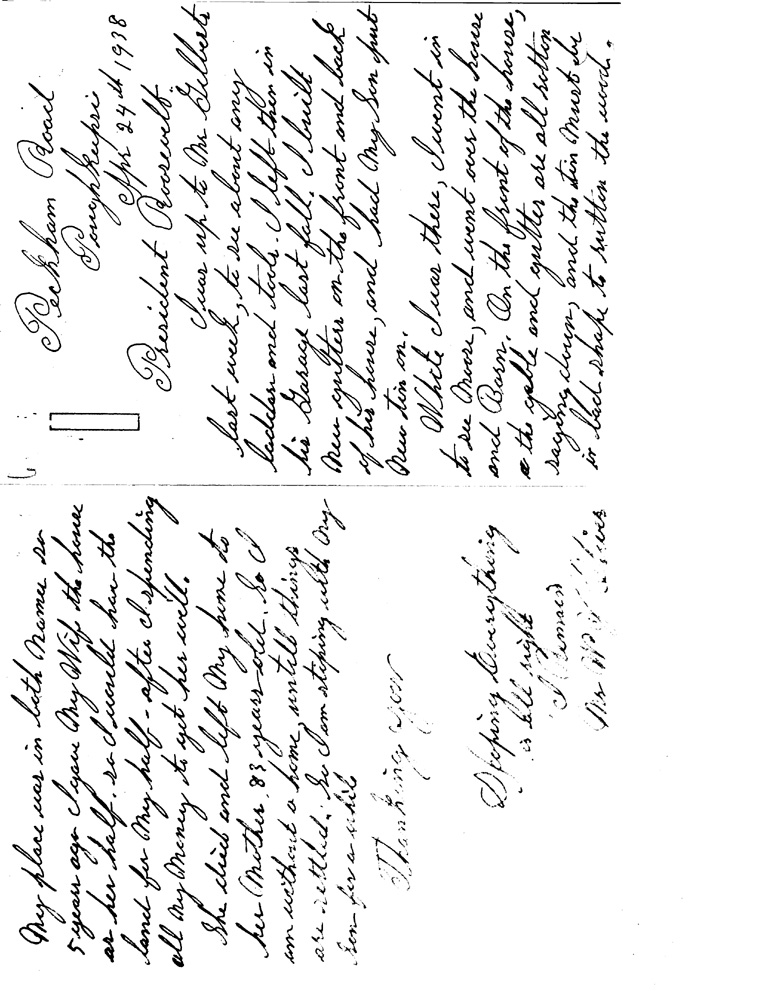 Peckham Road
Poughkupsi
Apr 24th 1938
President Roosevelt
I was up to Mr Gilberts
last week, to see about my
laddars and tools. I left then in
his Garage last fall. I built
New gutters on the front and back
of his house, and had My Son put
New tin on.
White I was there, I went in
to see Moore, and went over the house
and Barn. On the front of the house,
the gable and gutter are all rotton
saging down, and the tin Must be
in bad shape to rotton the wood.
My place was in both Names so
5 years ago I gave My Wife the house
as her half. so I would have the
land for My half - after I spending
all My Money to get her well.
She died and left My home to
her Mother. 83 years old. So I
am without a home, untill things
are settled. So I am stoping with My
Son for a while
Thanking you
Hoping Everything
is all right
I Remain
Mr